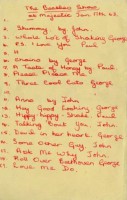 The Beatles Show
at Majestic Jan 17th 63
1. Shimmy by John
2. Whole Lot of Shaking George
3. P.S. I Love You Paul
4. 
5. Sheila by George
6. A Taste of Honey by Paul
7. Please Please Me
8. Three Cool Cats George
9. 
10. Anna by John
11. Hey Good Looking George
12. Hippy Hippy Shake Paul
13. Talking Bout You John
14. Devil in her Heart George
15. Some Other Guy John
16. Ask Me Why John
17. Roll Over Beethoven George
Love Me Do.